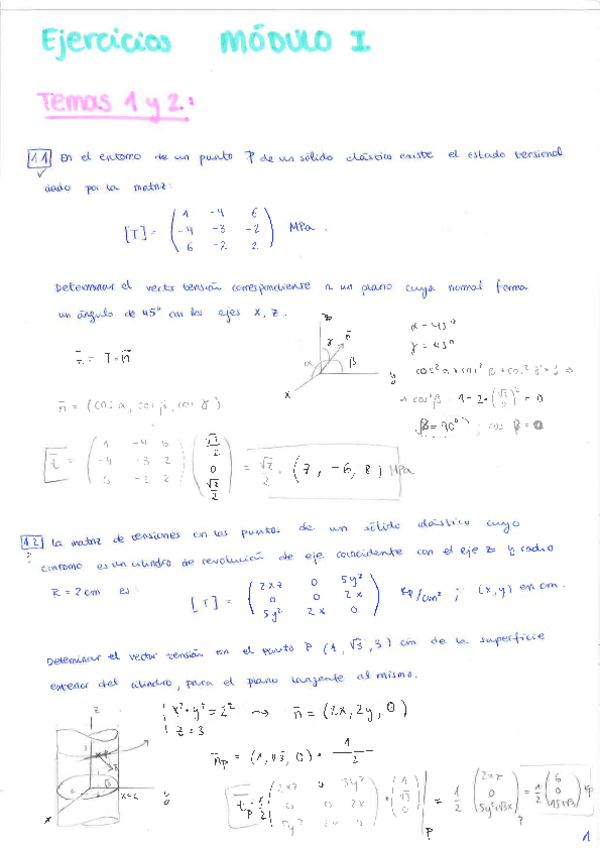 Ejercicios MÓDULO I
Temas 1 y 2.:
1.1 En el entorno de un punto P de un sólido elástico existe el estado tensional
dado por la matriz:
[T] = ( 1 -4 6
-4 -3 -2
6 -2 2 ) MPa.
Determinar el vector tensión correspondiente a un plano cuya normal forma
un ángulo de 45º con los ejes x, z.
z
n
α γ β
y
x
α = 45º
γ = 45º
cos²α + cos²β + cos²γ = 1 ⇒
⇒ cos²β = 1 - 2·(√2/2)² = 0
β = 90º ; cos β = 0
= T·n
n = (cos α, cos β, cos γ)
= ( 1 -4 6
-4 -3 2
6 -2 2 ) ( √2/2
0
√2/2 ) = √2/2 · (7, -6, 8) MPa
1.2 La matriz de tensiones en los puntos de un sólido elástico cuyo
?
contorno es un cilindro de revolución de eje coincidente con el eje z y radio
R = 2 cm es:
[T] = ( 2xz 0 5y²
0 0 2x
5y² 2x 0 ) Kp/cm² ; (x,y) en cm.
Determinar el vector tensión en el punto P (1, √3, 3) cm de la superficie
exterior del cilindro, para el plano tangente al mismo.
z
x² + y² = 2²
z = 3
→ n = (2x, 2y, 0)
n_P = (1, √3, 0) · 1/2
P
1/2 ( 2xz 0 5y²
0 0 2x
5y² 2x 0 ) · ( 1
√3
0 ) = 1/2 ( 2xz
0
5y²+√3x ) = 1/2 ( 6
0
15+√3 ) Kp
P
?
1